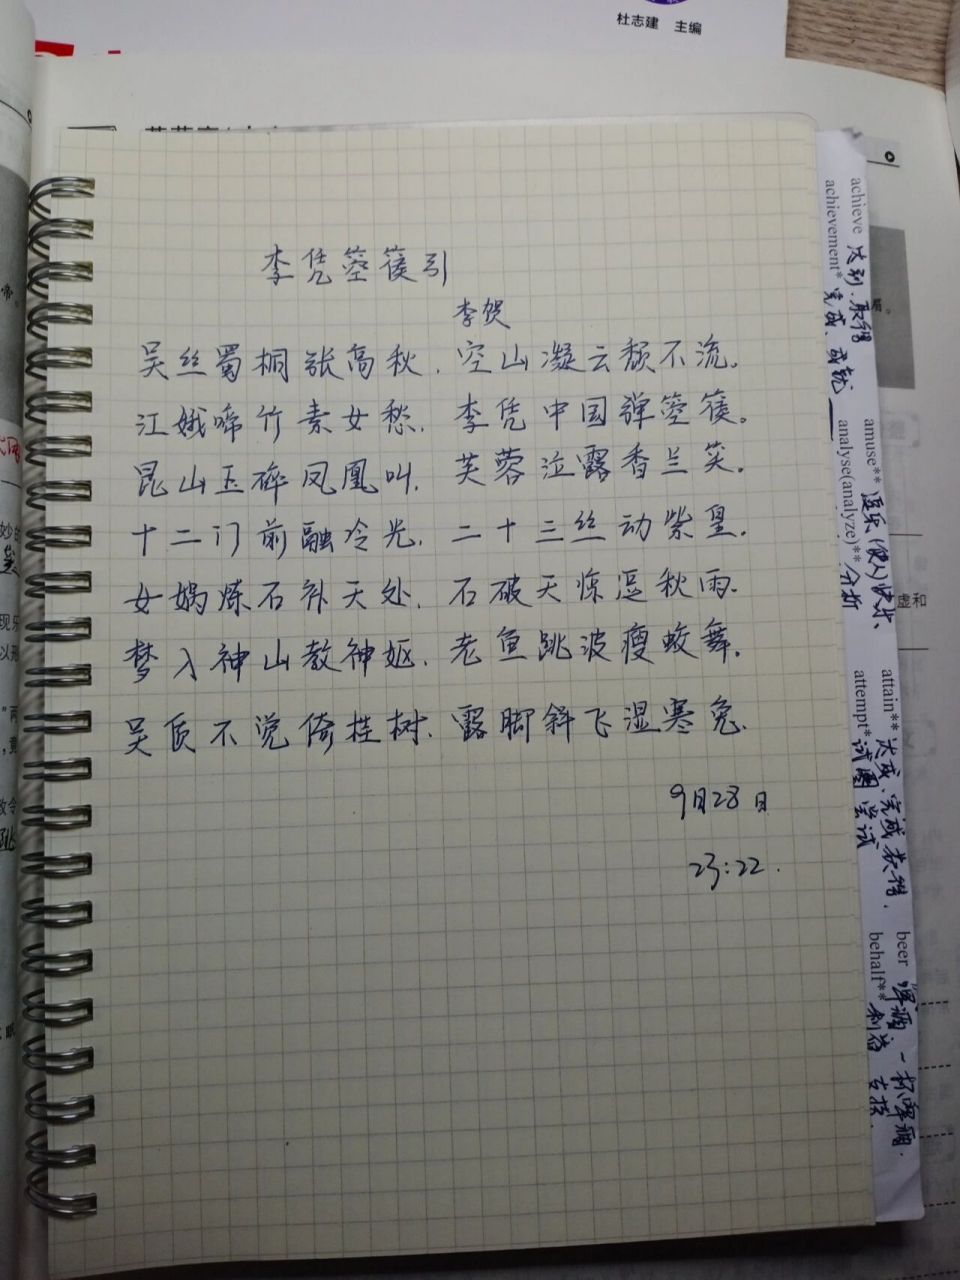 杜志建 主编
李凭箜篌引
李贺
吴丝蜀桐张高秋，空山凝云颓不流。
江娥啼竹素女愁，李凭中国弹箜篌。
昆山玉碎凤凰叫，芙蓉泣露香兰笑。
十二门前融冷光，二十三丝动紫皇。
女娲炼石补天处，石破天惊逗秋雨。
梦入神山教神妪，老鱼跳波瘦蛟舞。
吴质不觉倚桂树，露脚斜飞湿寒兔。
9月28日
23:22.
achieve 达到.取得
achievement* 完成.成就
amuse** 逗乐(使人)快乐、
analyse(analyze)** 分析
attain** 达成、完成 获得.
attempt* 试图 尝试
beer 啤酒 一杯啤酒.
behalf** 利益 支持.
虚和